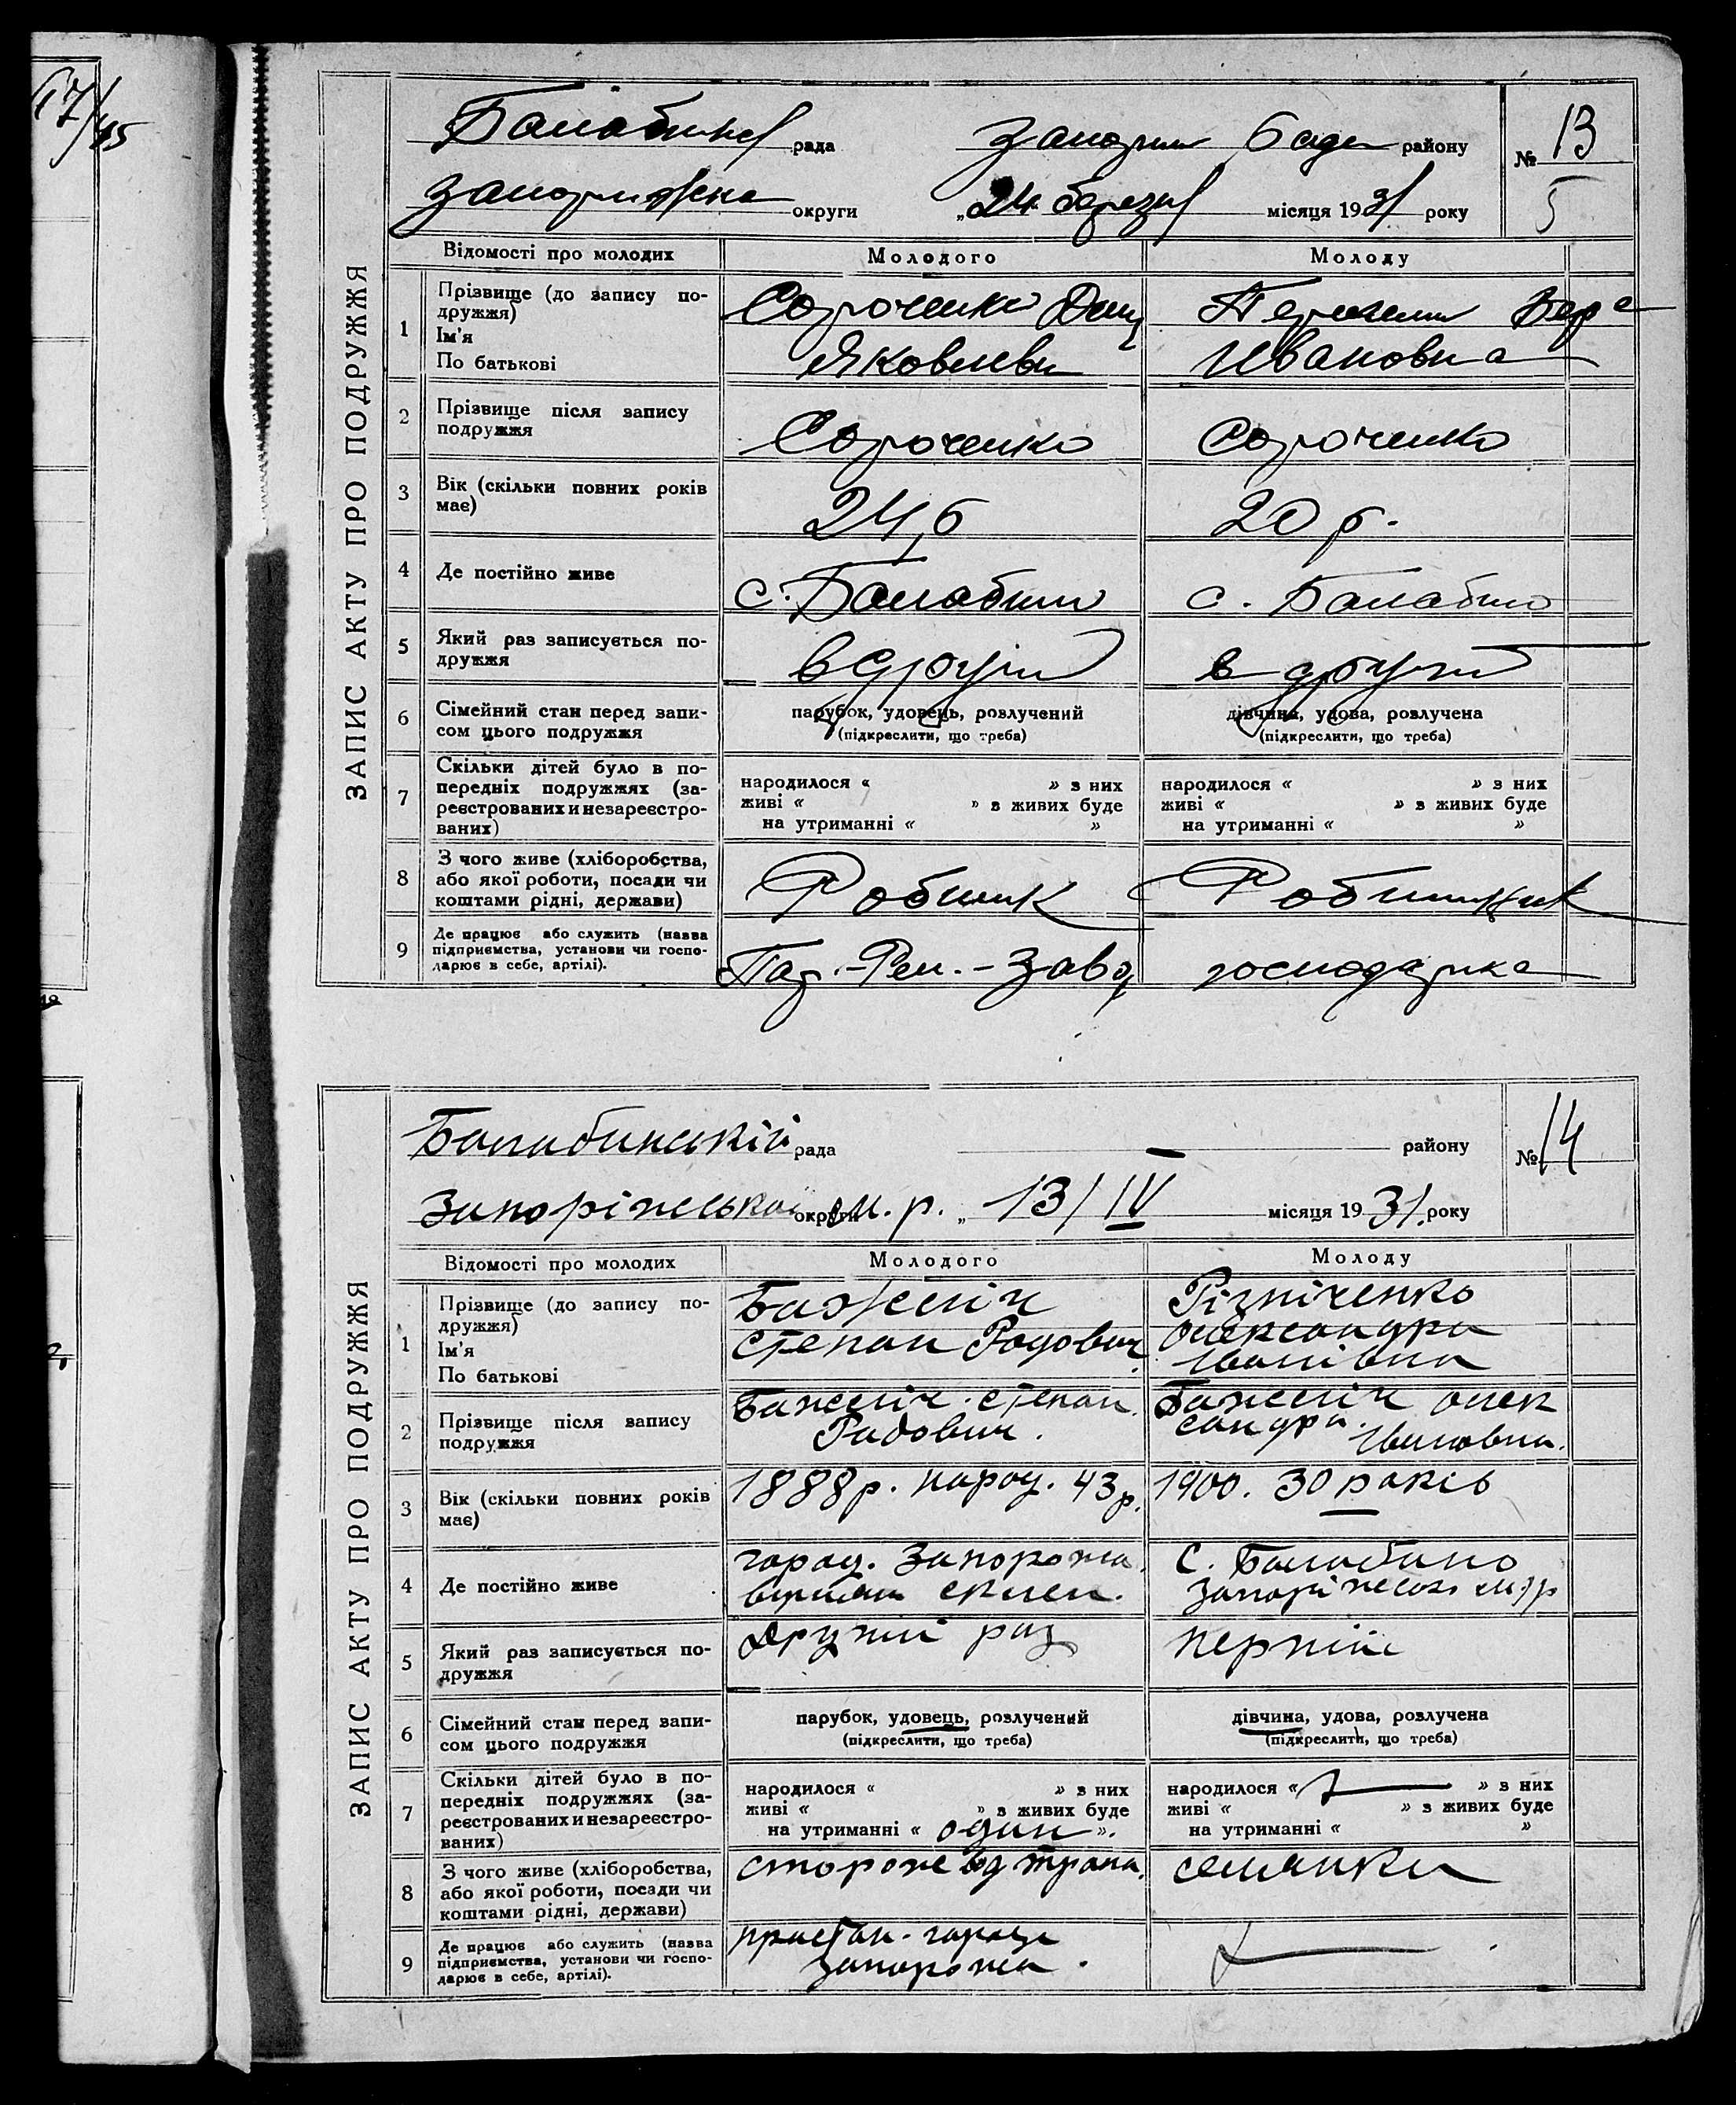 17/45
ЗАПИС АКТУ ПРО ПОДРУЖЖЯ
рада району № 13
округи „24 березня місяця 1931 року 5
Відомості про молодих Молодого Молоду
1 Прізвище (до запису по-
дружжя)
Ім'я
По батькові
Сороченко
Яковлевич
Вера
Ивановна
2 Прізвище після запису
подружжя
Сороченко Сороченко
3 Вік (скільки повних років
має)
24 20 р.
4 Де постійно живе
с. Балабино с. Балабино
5 Який раз записується по-
дружжя
в другий в другий
6 Сімейний стан перед запи-
сом цього подружжя
парубок, удовець, розлучений
(підкреслити, що треба)
дівчина, удова, розлучена
(підкреслити, що треба)
7 Скільки дітей було в по-
передніх подружжях (за-
реєстрованих и незареєстро-
ваних)
народилося « » з них
живі « » з живих буде
на утриманні « »
народилося « » з них
живі « » з живих буде
на утриманні « »
8 З чого живе (хліборобства,
або якої роботи, посади чи
коштами рідні, держави)
Робитник
9 Де працює або служить (назва
підприємства, установи чи госпо-
дарює в себе, артілі).
Пар.-Рем.-Завод господарка
ЗАПИС АКТУ ПРО ПОДРУЖЖЯ
Балабинській рада — району № 14
Запоріжської округи м.р. „ 13/IV місяця 1931. року
Відомості про молодих Молодого Молоду
1 Прізвище (до запису по-
дружжя)
Ім'я
По батькові
Бажеліч
Степан Радович
Різніченко
Олександра
Іванівна
2 Прізвище після запису
подружжя
Бажеліч Степан
Радович.
Бажеліч Олек
сандра.
Івановна.
3 Вік (скільки повних років
має)
1888 р. народ. 43 р. 1900. 30 років
4 Де постійно живе
город. Запорожа
с. Балабино
5 Який раз записується по-
дружжя
Другий раз перший
6 Сімейний стан перед запи-
сом цього подружжя
парубок, удовець, розлучений
(підкреслити, що треба)
дівчина, удова, розлучена
(підкреслити, що треба)
7 Скільки дітей було в по-
передніх подружжях (за-
реєстрованих и незареєстро-
ваних)
народилося « » з них
живі « » з живих буде
на утриманні « один ».
народилося « — » з них
живі « » з живих буде
на утриманні « »
8 З чого живе (хліборобства,
або якої роботи, посади чи
коштами рідні, держави)
сторож селянка
9 Де працює або служить (назва
підприємства, установи чи госпо-
дарює в себе, артілі).
пристан. города
Запорожа.